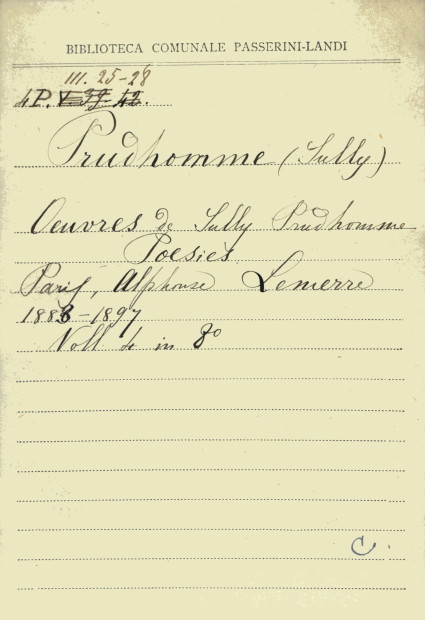 BIBLIOTECA COMUNALE PASSERINI-LANDI
III. 25-28
4P. V 39 42.
Prudhomme (Sully)
Oeuvres de Sully Prudhomme
Poesies
Paris, Alphonse Lemerre
1883-1897
Voll 4 in 8º
C.